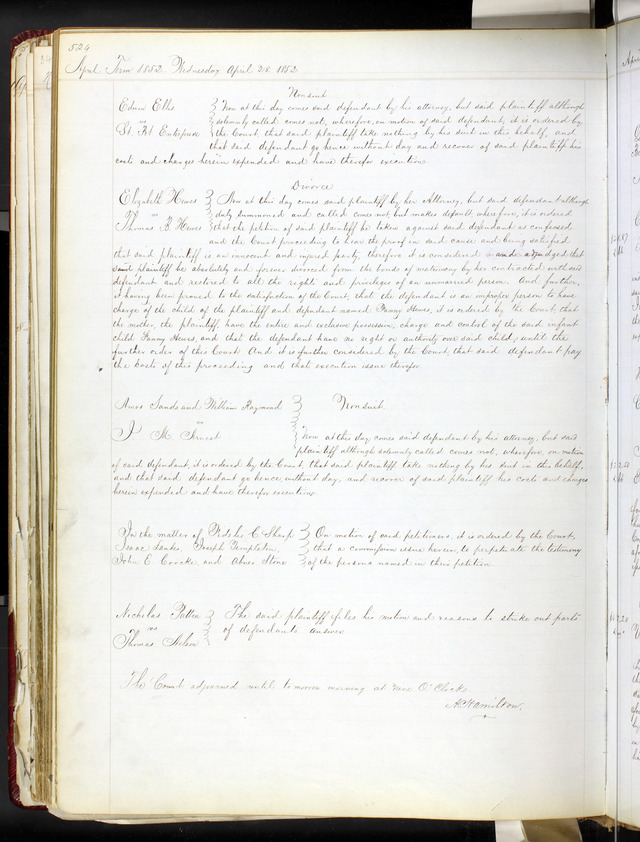 524
April Term 1852 Wednesday April 28. 1852
Nonsuit
Edwin Ellis } Now at this day comes said defendant by his attorney, but said plaintiff although
vs } solemnly called comes not, wherefore, on motion of said defendant, it is ordered by
St. Bt Enterprise } the Court, that said plaintiff take nothing by his suit in this behalf, and
that said defendant go hence without day and recover of said plaintiff his
costs and charges herein expended and have therefor execution
Divorce
Elizabeth Hewes } Now at this day comes said plaintiff by her Attorney, but said defendant although
vs } duly summoned and called comes not, but makes default, wherefore, it is ordered
Thomas B. Hewes } that the petition of said plaintiff be taken against said defendant as confessed
and the Court proceeding to hear the proof in said cause and being satisfied
that said plaintiff is an innocent and injured party, therefore it is considered and adjudged that
said plaintiff be absolutely and forever divorced from the bonds of matrimony by her contracted with said
defendant and restored to all the rights and privileges of an unmarried person. And further,
it having been proved to the satisfaction of the Court, that the defendant is an improper person to have
charge of the child of the plaintiff and defendant named Fanny Hewes, it is ordered by the Court, that
the mother, the plaintiff, have the entire and exclusive possession, charge and control of the said infant
child Fanny Hewes, and that the defendant have no right or authority over said child, until the
further order of this Court. And it is further considered by the Court, that said defendant pay
the costs of this proceeding and that execution issue therefor
Amos Sands and William Raymond } Nonsuit
vs
J M Ernest } Now at this day comes said defendant by his attorney, but said
plaintiff although solemnly called comes not, wherefore, on motion
of said defendant, it is ordered by the Court, that said plaintiff take nothing by his suit in this behalf,
and that said defendant go hence without day, and recover of said plaintiff his costs and charges
herein expended and have therefor execution
In the matter of C. Sharp } On motion of said petitioners, it is ordered by the Court,
Isaac Landes, Joseph Templeton, } that a commission issue herein, to perpetuate the testimony
John E. Croake and Abner Stone } of the persons named in their petition
Nicholas Patten } The said plaintiff files his motion and reasons to strike out parts
vs } of defendants answer
Thomas Nelson
The Court adjourned until tomorrow morning at nine O'Clock
A. Hamilton.